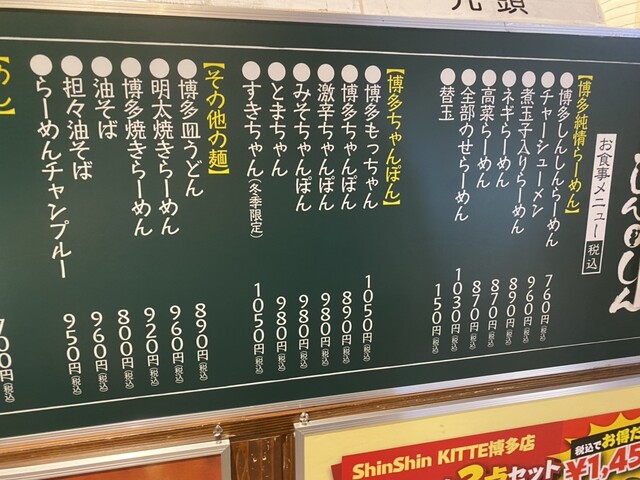 お食事メニュー 税込
【博多純情らーめん】
●博多しんしんらーめん 760円(税込)
●チャーシューメン 960円(税込)
●煮玉子入りらーめん 890円(税込)
●ネギらーめん 870円(税込)
●高菜らーめん 870円(税込)
●全部のせらーめん 1030円(税込)
●替玉 150円(税込)
【博多ちゃんぽん】
●博多もっちゃん 1050円(税込)
●博多ちゃんぽん 890円(税込)
●激辛ちゃんぽん 980円(税込)
●みそちゃんぽん 980円(税込)
●とまちゃん 980円(税込)
●すきちゃん(冬季限定) 1050円(税込)
【その他の麺】
●博多皿うどん 890円(税込)
●明太焼きらーめん 960円(税込)
●博多焼きらーめん 920円(税込)
●油そば 800円(税込)
●担々油そば 960円(税込)
●らーめんチャンプルー 950円(税込)
700円(税込)
ShinShin KITTE博多店
セット
税込でお得だ
¥1,45